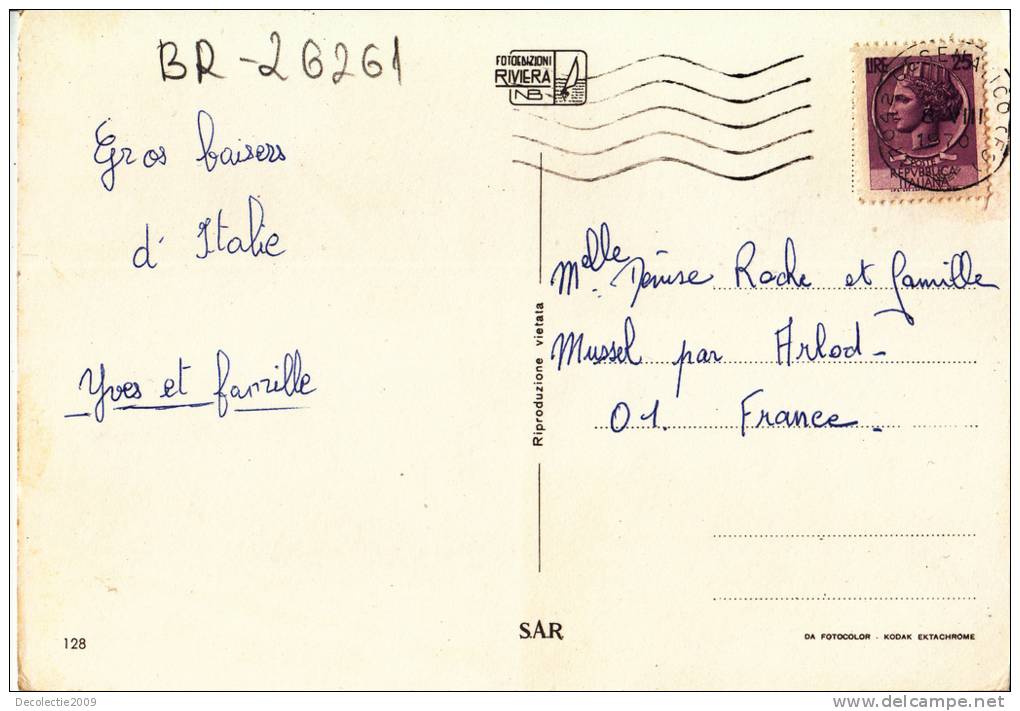 BR-26261
FOTOEDIZIONI
RIVIERA
NB
LIRE 25
8 VIII
1970
POSTE
REPVBBLICA
ITALIANA
Gros baisers
d' Italie
Yves et famille
Melle. Denise Roche et famille
Mussel par Arlod-
01. France.
Riproduzione vietata
128
SAR
DA FOTOCOLOR - KODAK EKTACHROME
Decolectie2009
www.delcampe.net